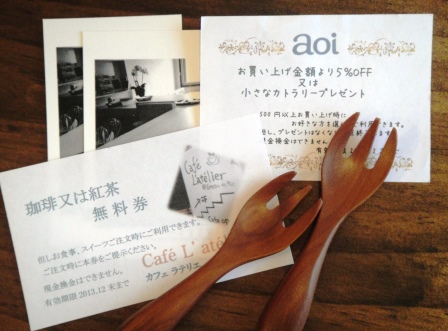 aoi
お買い上げ金額より5%OFF
又は
小さなカトラリープレゼント
500円以上お買い上げ時に
お好きな方を
利用できます。
プレゼントはなくな
現金換金はできません
珈琲又は紅茶
無料券
但しお食事、スイーツご注文時にご利用できます。
ご注文時に本券をご提示ください。
現金換金はできません。
有効期限2013.12末まで
Café
L'atelier
Café L' até
カフェ ラテリエ